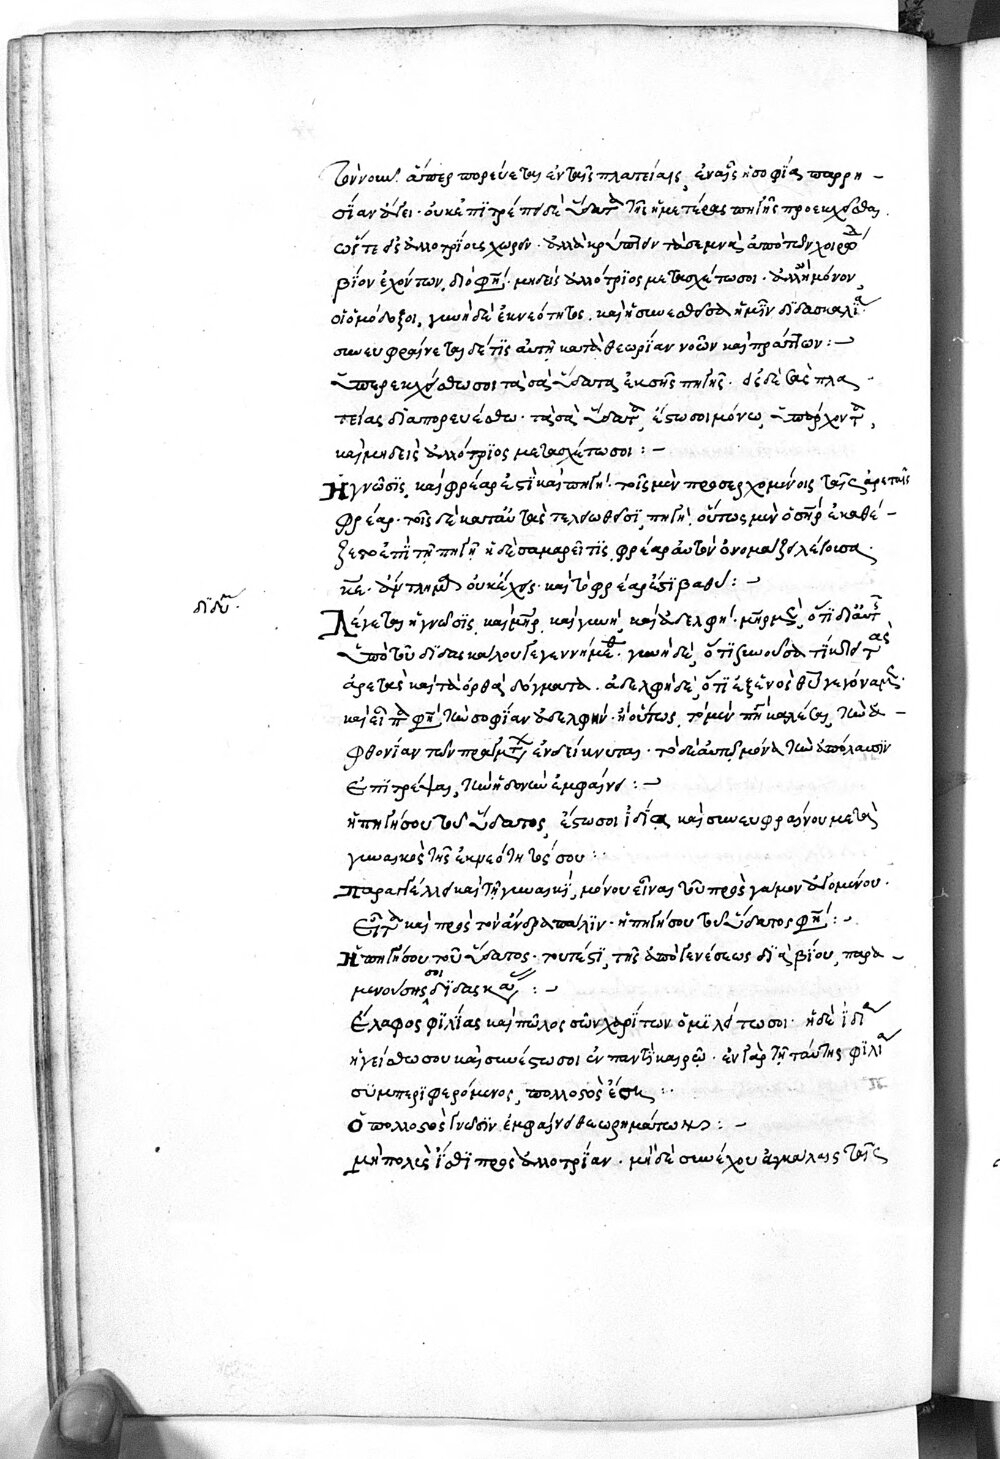 τὸν νοῦν. ἅπερ πορεύεται ἐν ταῖς πλατείαις, ἐν αἷς ἡ σοφία παρρη-
σίαν ἄγει· οὐκ ἐπιτρέπει δὲ ὕδατα τῆς ἡμετέρας πηγῆς προεκχεῖσθαι
ὥστε εἰς ἀλλοτρίους χωρεῖν· ἀλλὰ κρύπτειν τὰ σεμνὰ ἀπὸ τῶν χοιρώδη
βίον ἐχόντων, διό φησι· μηδεὶς ἀλλότριος μετασχέτω σοι· ἀλλ' ἢ μόνον
οἱ ὁμόδοξοι, γυνὴ δὲ ἐκ νεότητος, καὶ ἡ συνελθοῦσα ἡμῖν διδασκαλία·
συνευφραίνεται δέ τις αὐτῇ κατὰ θεωρίαν νοῶν καὶ πράττων :-
Ὑπερεκχείσθω σοι τὰ σὰ ὕδατα ἐκ σῆς πηγῆς· εἰς δὲ τὰς πλα-
τείας διαπορευέσθω· τὰ σὰ ὕδατα, ἔστω σοι μόνῳ ὑπάρχοντα,
καὶ μηδεὶς ἀλλότριος μετασχέτω σοι :-
Ἡ γνῶσις, καὶ φρέαρ ἐστὶ καὶ πηγή· τοῖς μὲν προσερχομένοις ταῖς ἀρεταῖς
φρέαρ· τοῖς δὲ κατ' αὐτὰς τελειωθεῖσι, πηγή, οὕτως μὲν ὁ σωτὴρ ἐκαθέ-
ζετο ἐπὶ τῇ πηγῇ ἡ δὲ σαμαρεῖτις, φρέαρ αὐτὸν ὀνομάζει λέγουσα·
κε· ἄντλημα οὐκ ἔχεις· καὶ τὸ φρέαρ ἐστὶ βαθύ :-
διδύ.
Λέγεται ἡ γνῶσις, καὶ μηρ, καὶ γυνὴ, καὶ ἀδελφή· μηρ μὲν, ὅτι δι' αὐτῆς
ὑπὸ τοῦ διδασκάλου γεγεννήμεθα· γυνὴ δὲ, ὅτι συνοῦσα τίκτει τὰς
ἀρετὰς καὶ τὰ ὀρθὰ δόγματα· ἀδελφὴ δὲ, ὅτι ἐξ ἑνὸς θυ γεγόναμεν·
καὶ φησὶ, τὴν σοφίαν ἀδελφήν· ἢ οὕτως, τὸ μὲν πηγὴ καλεῖται, τὴν ἀ-
φθονίαν τῶν πραγμάτων ἐνδείκνυται· τὸ δὲ αὐτῷ μόνῳ τὴν ἀπόλαυσιν
ἐπιτρέψαι, τὴν ἡδονὴν ἐμφαίνει :-
ἡ πηγή σου τοῦ ὕδατος, ἔστω σοι ἰδία, καὶ συνευφραίνου μετὰ
γυναικὸς τῆς ἐκ νεότητός σου :
Παραγγέλλει καὶ τῇ γυναικὶ, μόνου εἶναι τοῦ πρὸς γάμον ἀγομένου·
εἶτα καὶ πρὸς τὸν ἄνδρα πάλιν· ἡ πηγή σου τοῦ ὕδατός φησι :-
Ἡ πηγή σου τοῦ ὕδατος· τουτέστι, τῆς ἀπὸ γενέσεως διὰ βίου, παρα-
μενούσης σοι διδασκαλίας :-
Ἔλαφος φιλίας καὶ πῶλος σῶν χαρίτων ὁμιλείτω σοι· ἡ δὲ ἰδία
ἡγείσθω σου καὶ συνέστω σοι ἐν παντὶ καιρῷ· ἐν γὰρ τῇ ταύτης φιλίᾳ
συμπεριφερόμενος, πολλοστὸς ἔσῃ :
Ὁ πολλοστὸς γνῶσιν ἐμφαίνει θεωρημάτων :-
μὴ πολὺς ἴσθι πρὸς ἀλλοτρίαν· μηδὲ συνέχου ἀγκάλαις ταῖς